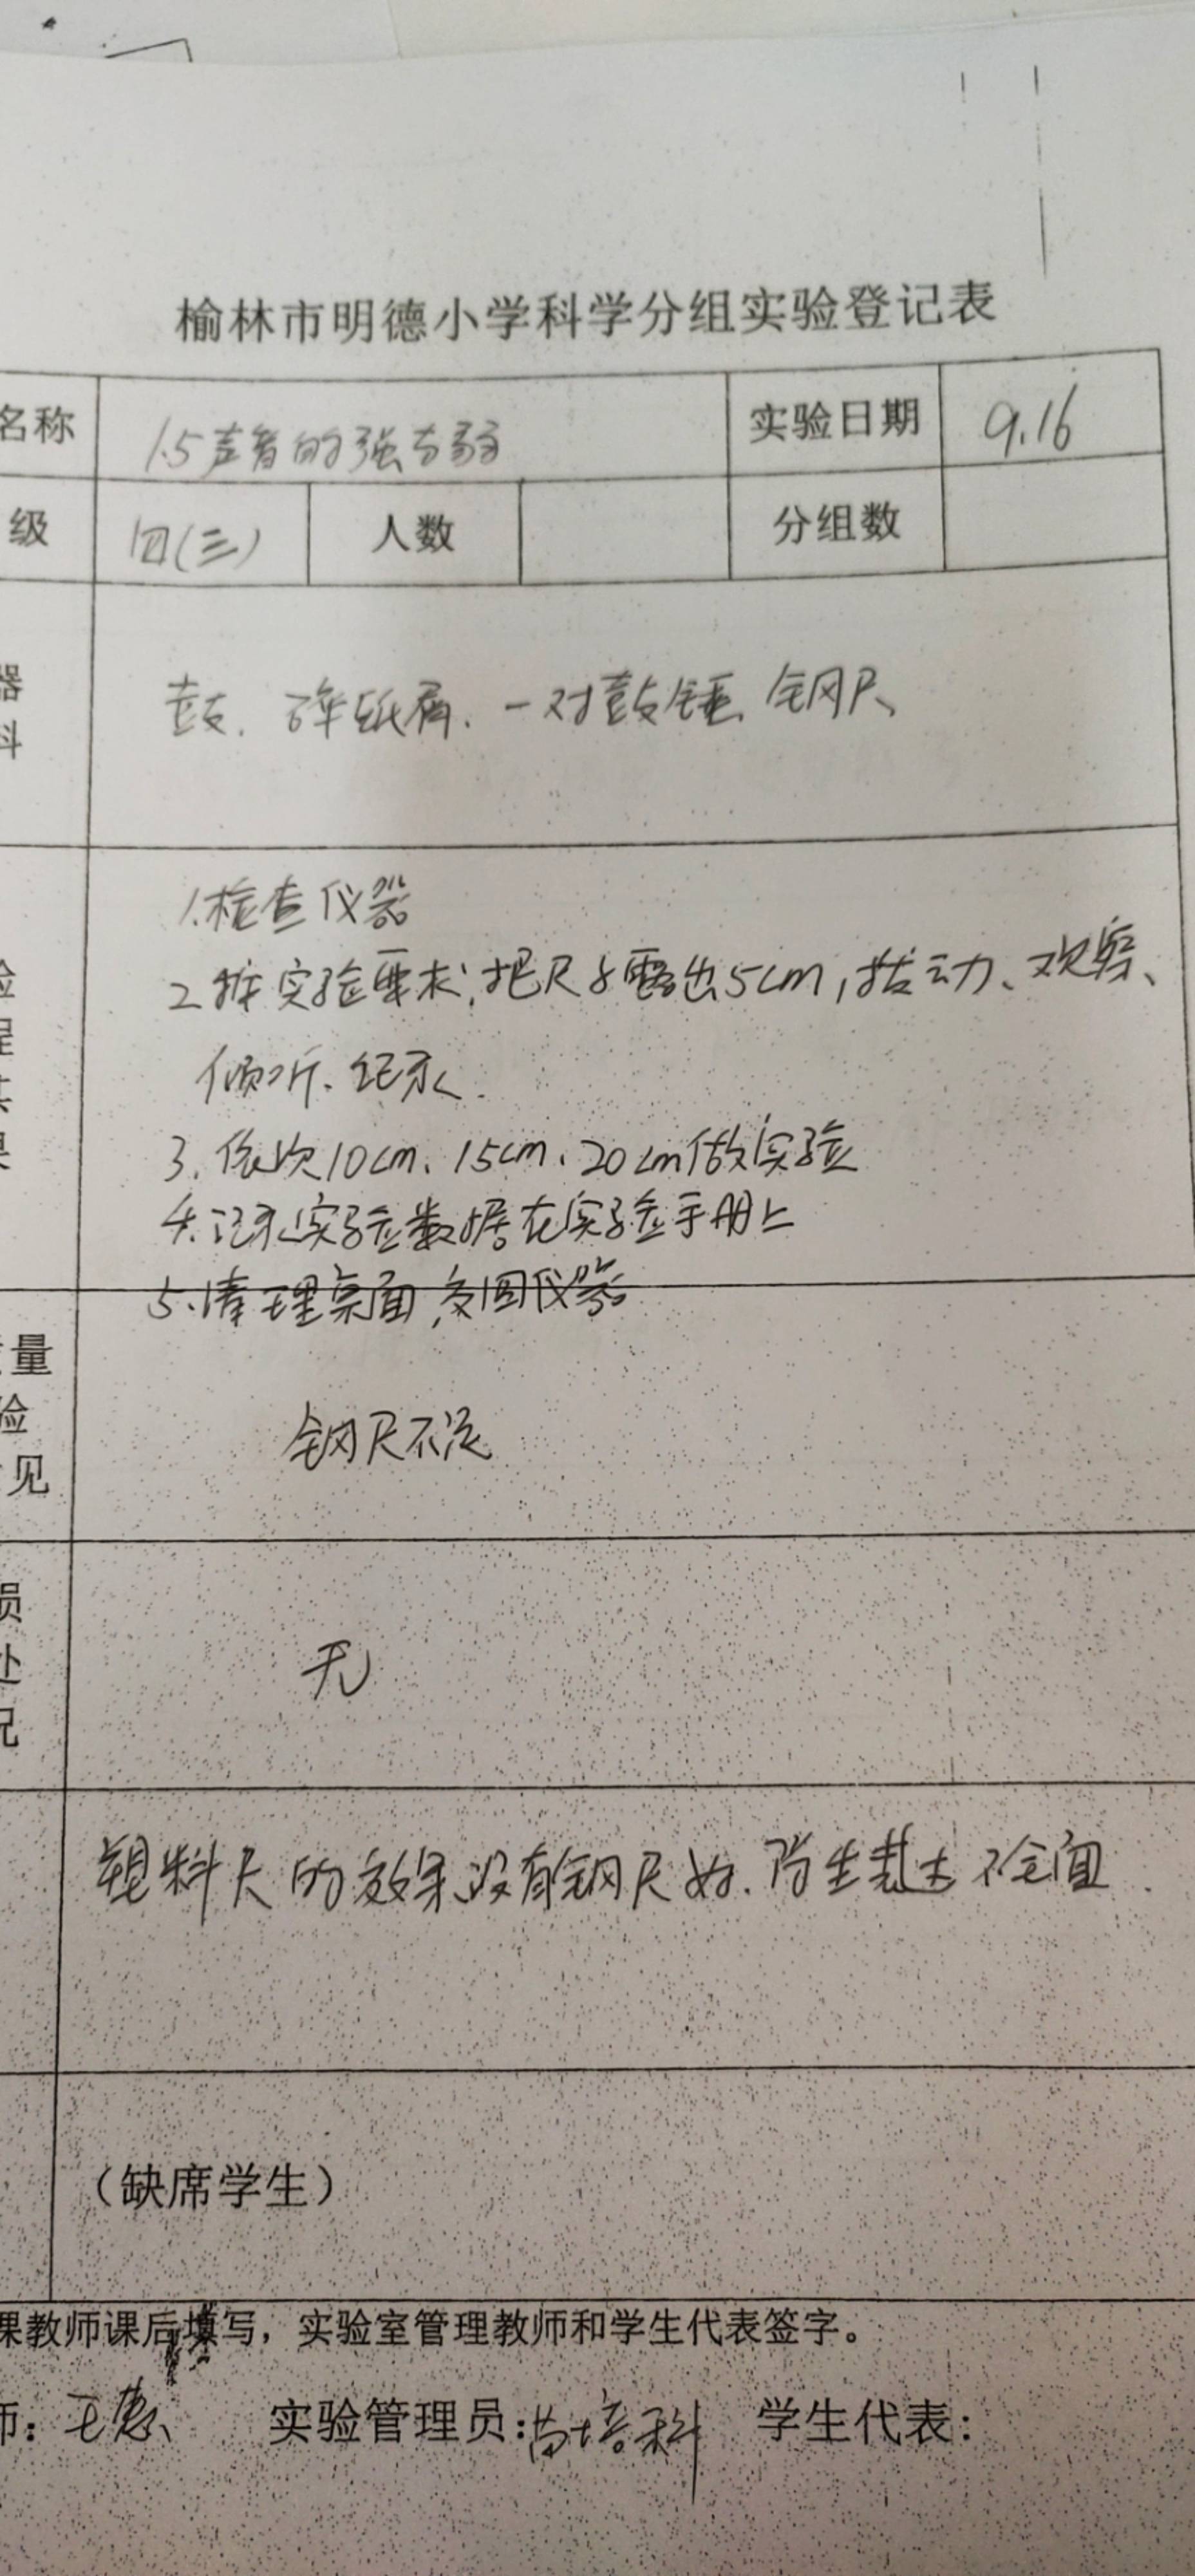 榆林市明德小学科学分组实验登记表
名称 1.5声音的强与弱 实验日期 9.16
级 四(三) 人数 分组数
器
料
鼓、碎纸屑、一对鼓锤、钢尺、
1.检查仪器
2.按实验要求,把尺子露出5cm,拨动、观察、
倾听、纪录.
3.依次10cm、15cm、20cm做实验
4.记录实验数据在实验手册上
5.清理桌面,交回仪器
验
程
果
量
验
见
钢尺不足
损
处
况
无
塑料尺的效果没有钢尺好.学生表达不全面.
（缺席学生）
课教师课后填写，实验室管理教师和学生代表签字。
师：王惠 实验管理员：苗培科 学生代表：